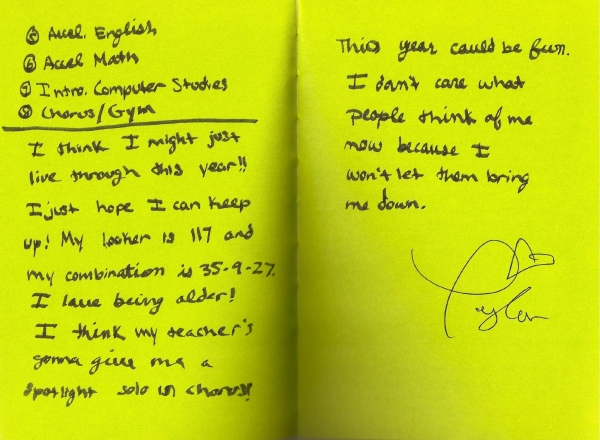 ⑤ Accel. English
⑥ Accel Math
⑦ Intro. Computer Studies
⑧ Chorus/Gym
I think I might just
live through this year!!
I just hope I can keep
up! My locker is 117 and
my combination is 35-9-27.
I love being older!
I think my teacher's
gonna give me a
spotlight solo in chorus!!
This year could be fun.
I don't care what
people think of me
now because I
won't let them bring
me down.
Taylor